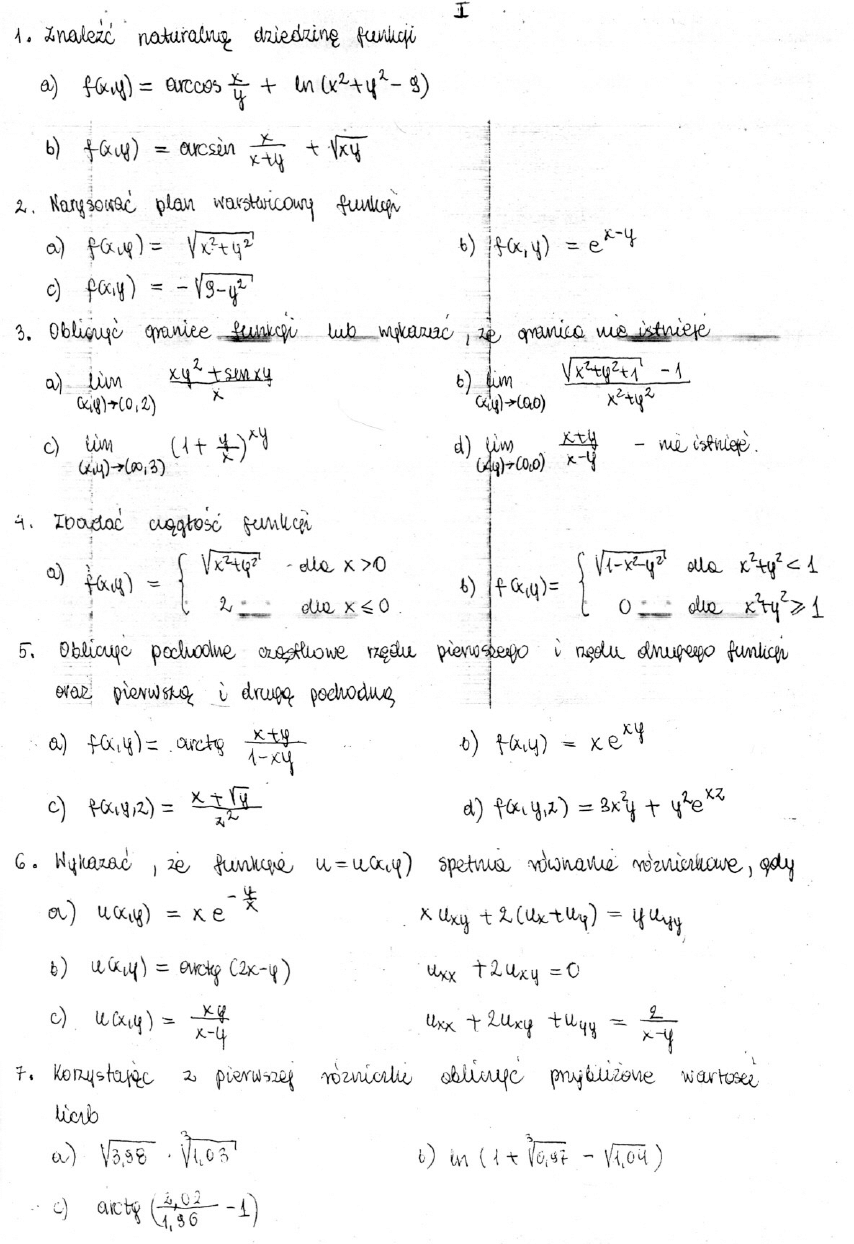 I
1. Znaleźć naturalną dziedzinę funkcji
a) f(x,y) = arccos x/y + ln(x²+y²-9)
b) f(x,y) = arcsin x/(x+y) + √(xy)
2. Narysować plan warstwicowy funkcji
a) f(x,y) = √(x²+y²) b) f(x,y) = e^(x-y)
c) f(x,y) = -√(9-y²)
3. Obliczyć granice funkcji lub wykazać, że granica nie istnieje
a) lim (x,y)→(0,2) (xy²+sin xy)/x b) lim (x,y)→(0,0) (√(x²+y²+1) - 1)/(x²+y²)
c) lim (x,y)→(∞,3) (1+y/x)^(xy) d) lim (x,y)→(0,0) (x+y)/(x-y) - nie istnieje.
4. Zbadać ciągłość funkcji
a) f(x,y) = { √(x²+y²) dla x>0 ; 2 dla x≤0 b) f(x,y) = { √(1-x²-y²) dla x²+y²<1 ; 0 dla x²+y²≥1
5. Obliczyć pochodne cząstkowe rzędu pierwszego i rzędu drugiego funkcji
oraz pierwszą i drugą pochodną
a) f(x,y) = arctg (x+y)/(1-xy) b) f(x,y) = xe^(xy)
c) f(x,y,z) = (x+√y)/z² d) f(x,y,z) = 3x²y + y²e^(xz)
6. Wykazać, że funkcje u=u(x,y) spełnia równanie różniczkowe, gdy
a) u(x,y) = xe^(-y/x) x u_xy + 2(u_x+u_y) = y u_yy
b) u(x,y) = arctg (2x-y) u_xx + 2u_xy = 0
c) u(x,y) = xy/(x-y) u_xx + 2u_xy + u_yy = 2/(x-y)
7. Korzystając z pierwszej różniczki obliczyć przybliżone wartości
liczb
a) √3,98 · ∛1,03 b) ln(1+∛0,97 - √1,04)
c) arctg (2,02/1,96 - 1)